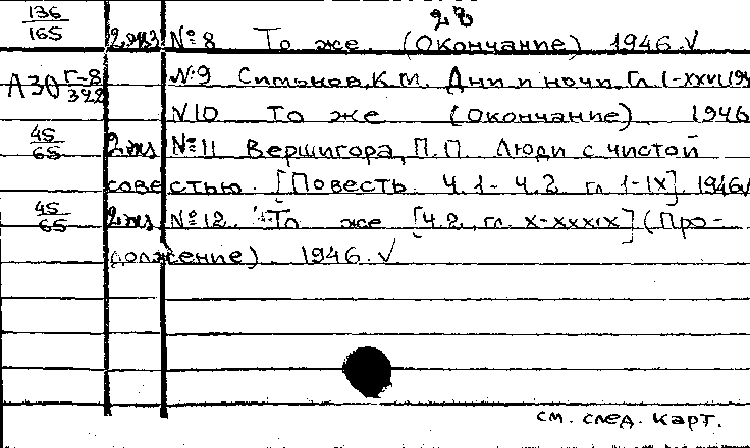 28
136
165 2 экз № 8 То же. (Окончание) 1946.V
А30 Г-8
322 №9 Симонов, К.М. Дни и ночи. Гл I-XXVI. 19
№10 То же (Окончание). 1946
45
65 2 экз №11 Вершигора, П.П. Люди с чистой
совестью. [Повесть. Ч.1-Ч.2. гл I-IX]. 1946V
45
65 2 экз №12. То же [Ч.2. гл. X-XXXIX] (Про-
должение). 1946.V
см. след. карт.